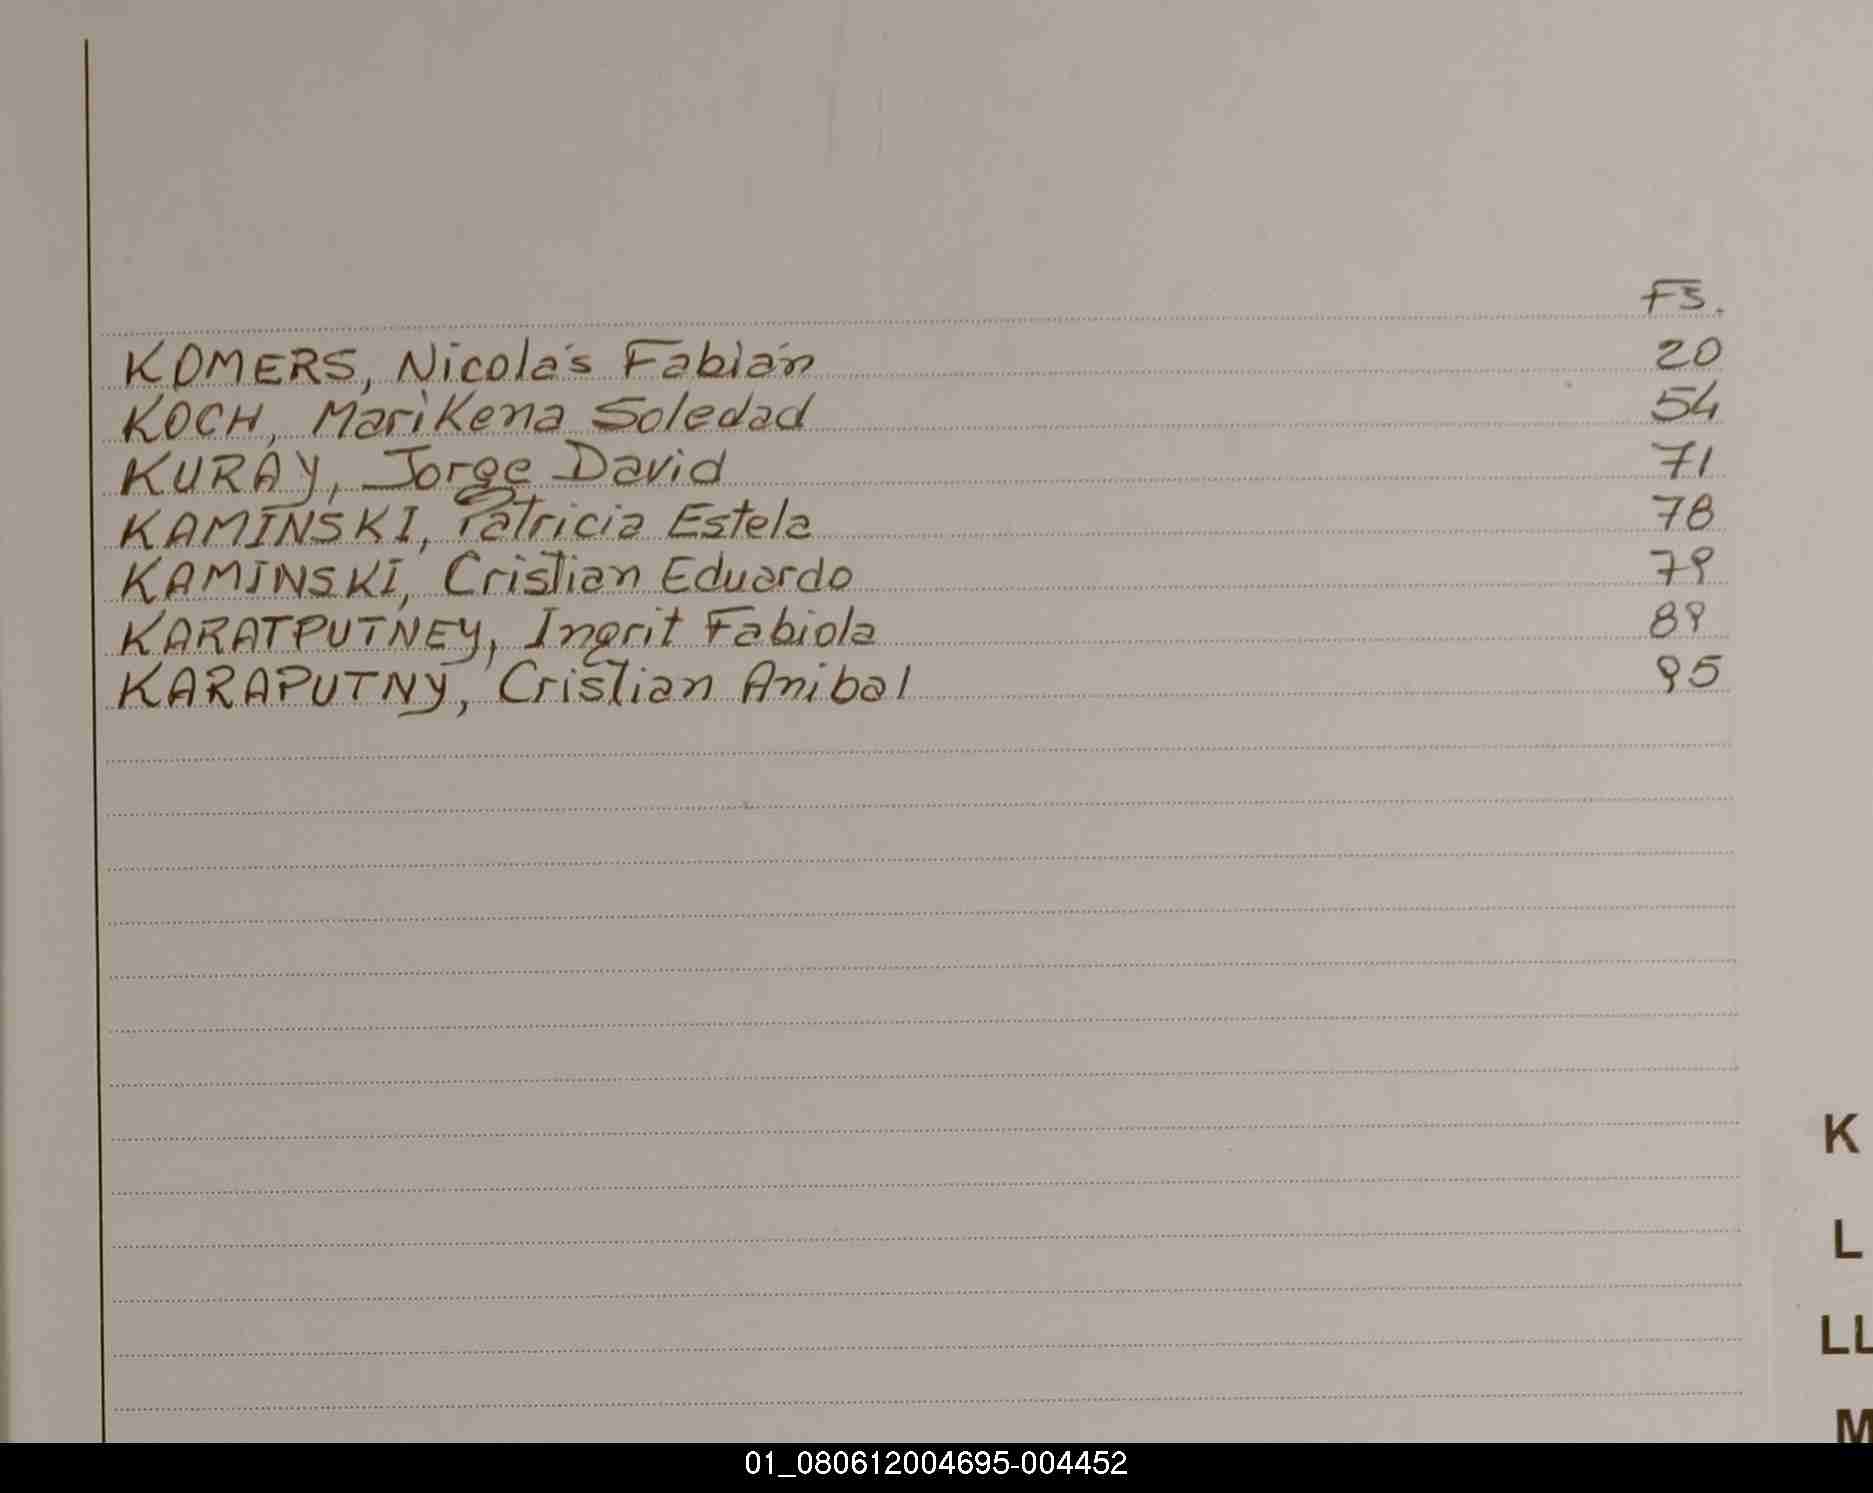 Fs.
KOMERS, Nicolás Fabián 20
KOCH, MariKena Soledad 54
KURAY, Jorge David 71
KAMINSKI, Patricia Estela 78
KAMINSKI, Cristian Eduardo 79
KARATPUTNEY, Ingrit Fabiola 89
KARAPUTNY, Cristian Anibal 95
K
L
LL
M
01_080612004695-004452